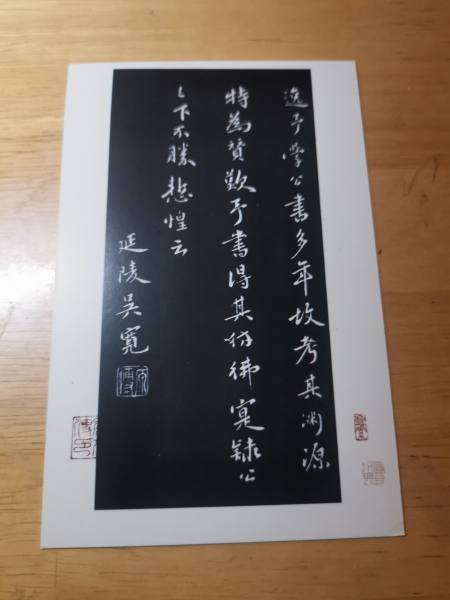 逸予学公書多年故考其渊源
特為賛歎予書得其彷彿寔録公
之下不勝慙惶云
延陵吳寬